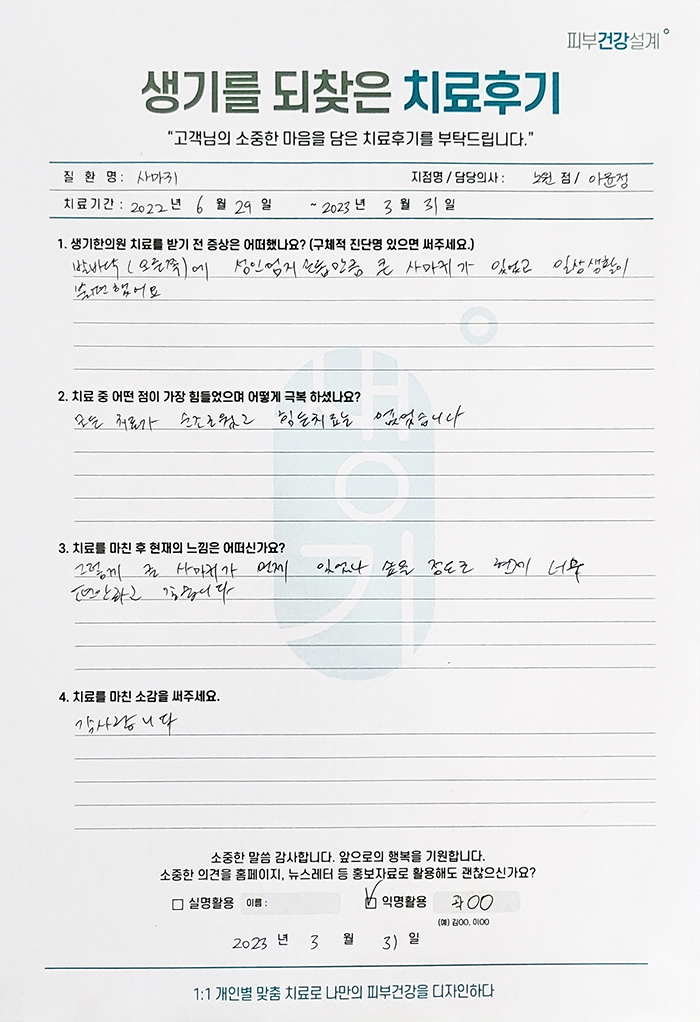 피부건강설계
생기를 되찾은 치료후기
“고객님의 소중한 마음을 담은 치료후기를 부탁드립니다.”
질 환 명 : 사마귀 지점명 / 담당의사 : 노원 점 / 이윤정
치료기간 : 2022 년 6 월 29 일 ~ 2023 년 3 월 31 일
1. 생기한의원 치료를 받기 전 증상은 어떠했나요? (구체적 진단명 있으면 써주세요.)
발바닥 (오른쪽)에 성인엄지손톱만큼 큰 사마귀가 있었고 일상생활이
불편했어요
2. 치료 중 어떤 점이 가장 힘들었으며 어떻게 극복 하셨나요?
모든 치료가 순조로웠고 힘든치료는 없었습니다
3. 치료를 마친 후 현재의 느낌은 어떠신가요?
그렇게 큰 사마귀가 언제 있었나 싶을 정도로 현재 너무
편안하고 좋습니다
4. 치료를 마친 소감을 써주세요.
감사합니다
생기
소중한 말씀 감사합니다. 앞으로의 행복을 기원합니다.
소중한 의견을 홈페이지, 뉴스레터 등 홍보자료로 활용해도 괜찮으신가요?
실명활용 이름 : 익명활용 곽OO
(예) 김OO, 이OO
2023 년 3 월 31 일
1:1 개인별 맞춤 치료로 나만의 피부건강을 디자인하다